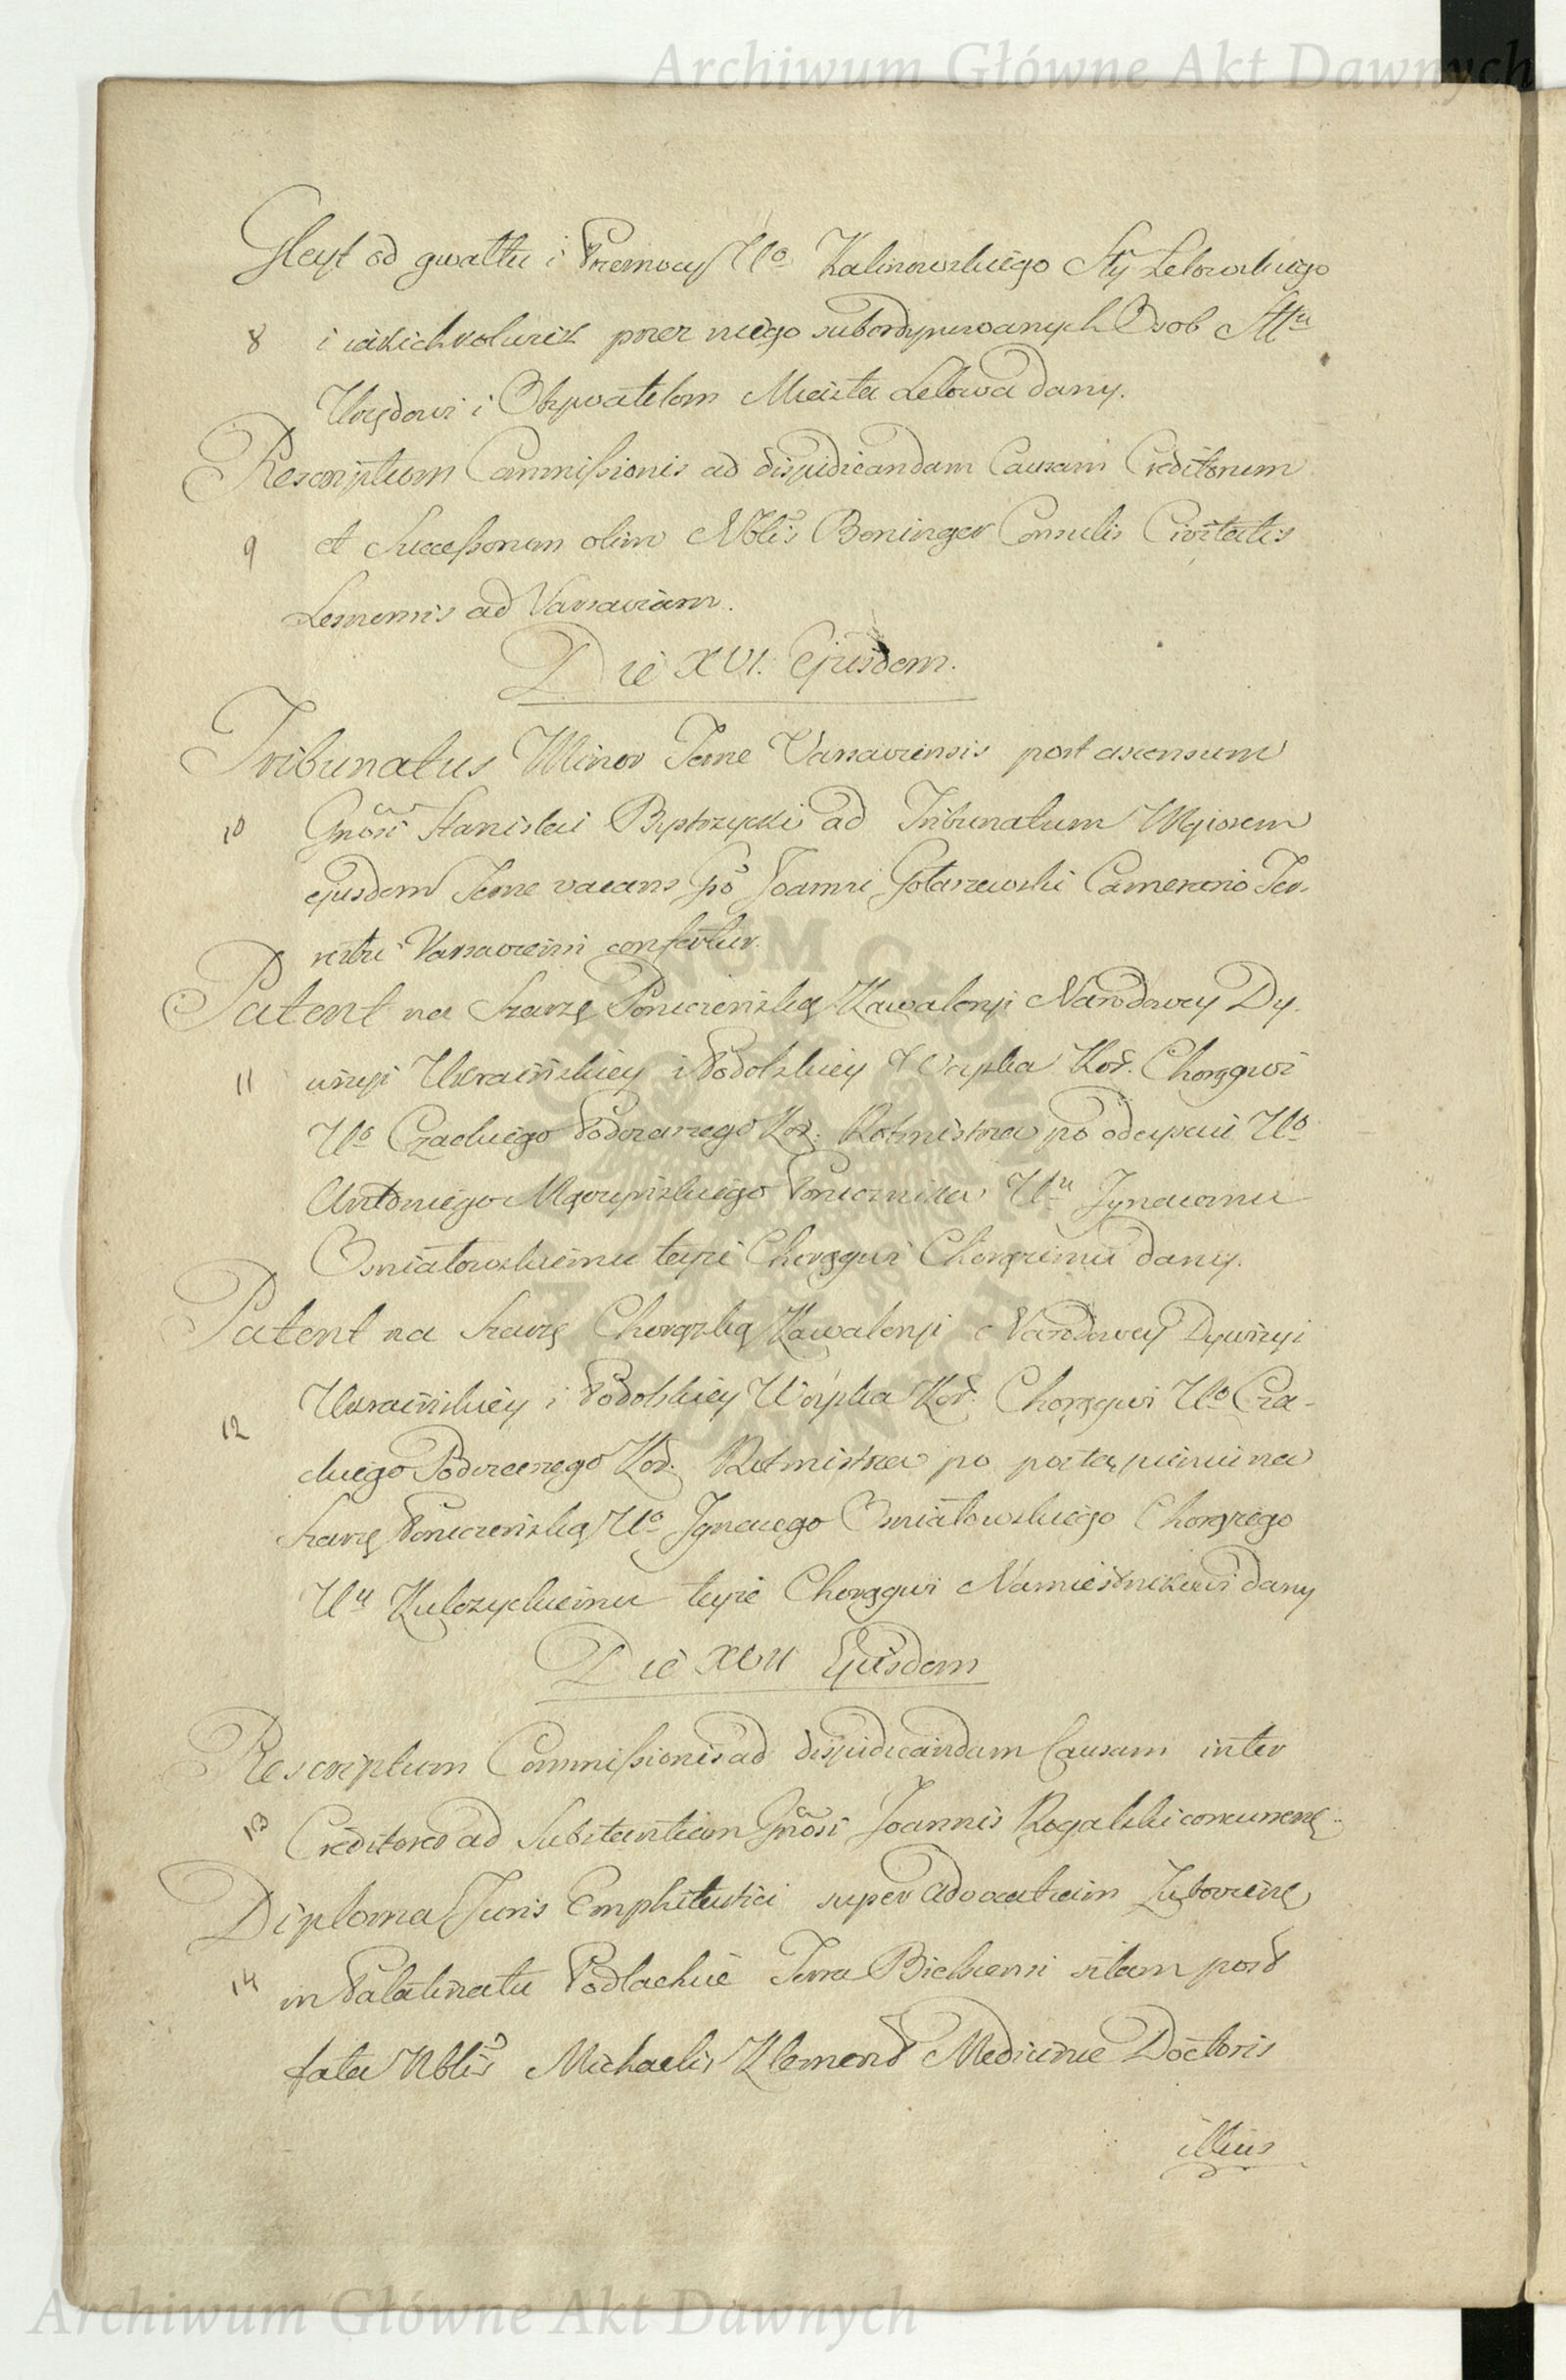 Archiwum Główne Akt Dawnych
Gleyt od gwałtu i Przemocy Uo Kalinowskiego Sty Lelowskiego
8 i iakichkolwiek przez niego subordynowanych Osob Sttu
Urzędowi i Obywatelom Miasta Lelowa dany.
Rescriptum Commissionis ad disjudicandam Causam Creditorum
9 et Successorum olim Nblis Boninger Consulis Civitatis
Lesnensis ad Varsaviam.
Die XVI. Ejusdem.
Tribunatus Minor Terrae Varsaviensis post ascensum
10 Gnosi Stanislai Bystrzycki ad Tribunatum Majorem
ejusdem Terrae vacans Gso Joanni Gotarzewski Camerario Ter-
restri Varsaviensi confertur.
Patent na Szarżę Poruczeńską Kawaleryi Narodowey Dy-
11 wizyi Ukraińskiey i Podolskiey Woyska Kor. Chorągwi
Uo Czackiego Podczaszego Kor. Rotmistrza po odeyściu Uo
Antoniego Porucznika Uu Ignacemu
Osniałowskiemu teyże Chorągwi Chorążemu dany.
Patent na Szarżę Chorążką Kawaleryi Narodowey Dywizyi
12 Ukraińskiey i Podolskiey Woyska Kor. Chorągwi Uo Cza-
ckiego Podczaszego Kor. Rotmistrza po postąpieniu na
Szarżę Poruczeńską Uo Ignacego Osniałowskiego Chorążego
Uu Kulczyckiemu teyże Chorągwi Namiestnikowi dany
Die XVII Ejusdem
Rescriptum Commissionis ad disjudicandam Causam inter
13 Creditores ad Substantiam Gnosi Joannis Rogalski concurren.
Diploma Juris Emphiteutici super Advocatiam
14 in Palatinatu Podlachiae Terra Bielscensi sitam post
fata Nblis Michaelis Klemens Medicinae Doctoris
illius
Archiwum Główne Akt Dawnych